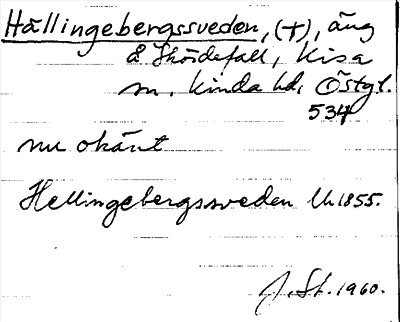 Hällingebergssveden, (†), äng
å Skördefall, Kisa
sn, Kinda hd, Östgl.
534
nu okänt
Hellingebergssveden Uh. 1855.
J. St. 1960.